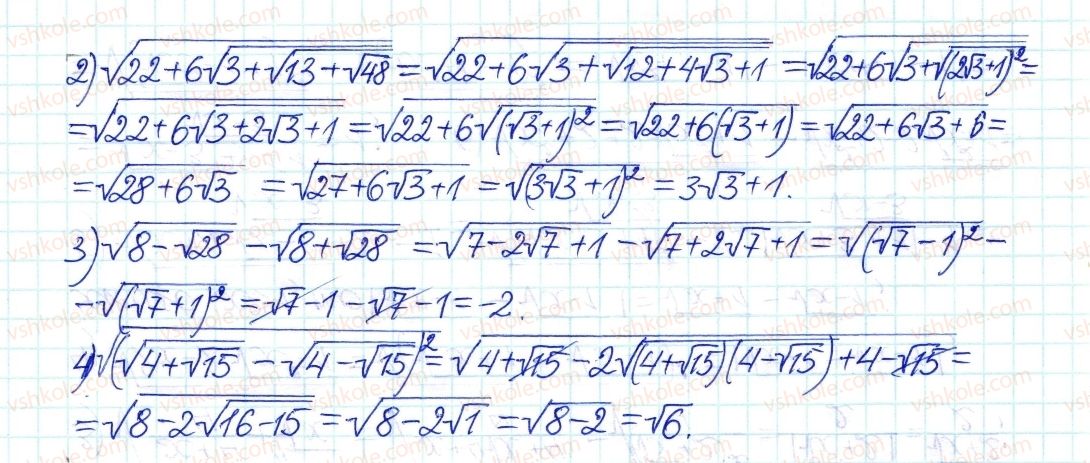 2) √(22+6√(3+√(13+√48))) = √(22+6√(3+√(12+4√3+1))) = √(22+6√(3+√((2√3+1)²))) =
= √(22+6√(3+2√3+1)) = √(22+6√((√3+1)²)) = √(22+6(√3+1)) = √(22+6√3+6) =
= √(28+6√3) = √(27+6√3+1) = √((3√3+1)²) = 3√3+1.
3) √(8-√28) - √(8+√28) = √(7-2√7+1) - √(7+2√7+1) = √((√7-1)²) -
- √((√7+1)²) = √7-1-√7-1 = -2.
4) √((√(4+√15) - √(4-√15))²) = √(4+√15-2√((4+√15)(4-√15))+4-√15) =
= √(8-2√(16-15)) = √(8-2√1) = √(8-2) = √6.